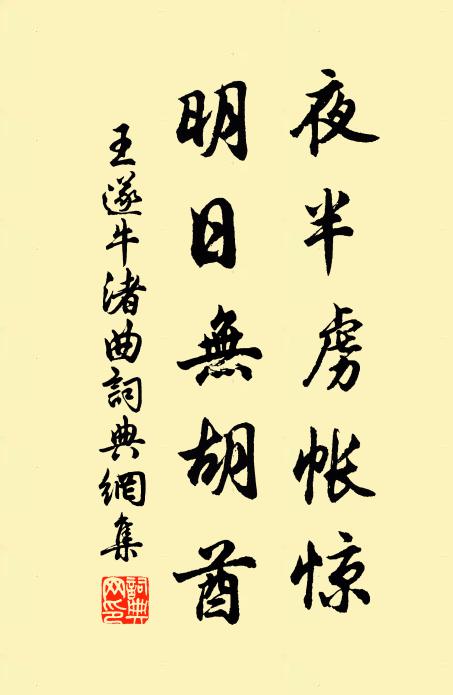 夜半虏帐惊
明日無胡酋
王遂牛渚曲詞典網集